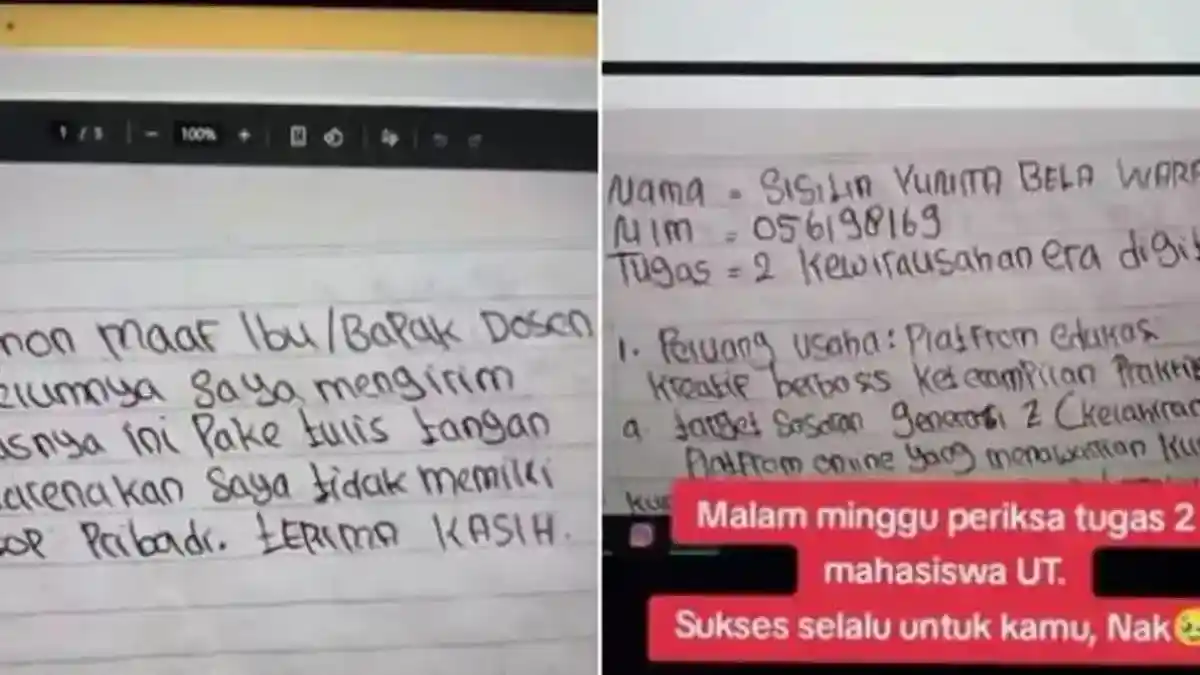 1 / 5 100%
mon maaf Ibu/Bapak Dosen
elumnya saya mengirim
asnya ini Pake tulis tangan
arenakan saya tidak memiliki
top Pribadi. tERIMA KASIH.
Nama = SISILIA YUNITA BELA WARA
NIM = 056198169
Tugas = 2 Kewirausahan era digit
1. Peluang usaha: Platfrom edukas
Kreatif berbass Keterampilan Prakti
a. target Sasaran generasi Z (kelahiran
Platfrom online yang menawarkan Ku
Malam minggu periksa tugas 2
mahasiswa UT.
Sukses selalu untuk kamu, Nak